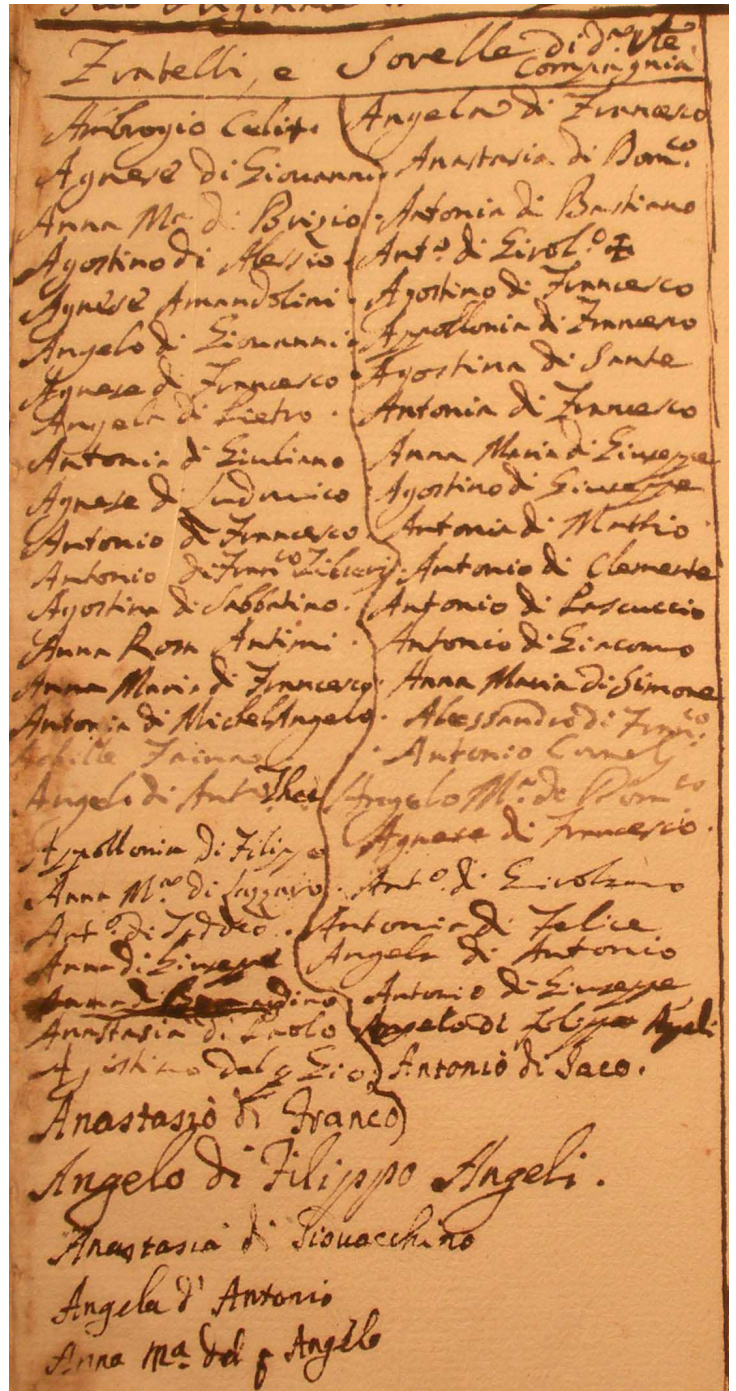 Fratelli, e Sorelle di d.ª Ven.le
Compagnia
Ambrogio Celi
Agnese di Giovanni
Anna M.a di Brizio
Agostino di Alessio
Agnese Amandolini
Angelo di Giovanni
Agnese di Francesco
Angela di Pietro
Antonia di Giuliano
Agnese di Ludovico
Antonio di Francesco
Antonio di Fran.co
Agostina di Sabbatino
Anna Rosa Antimi
Anna Maria di Francesco
Antonia di MichelAngelo
Achille
Angelo di Ant.o
Appollonia di Filippo
Anna M.a di Lazzaro
Ant.o di Taddeo
Anna di Giuseppe
Anna di Bernardino
Anastasia di Paolo
Agostino del q Gio.
Anastasio di Franco
Angelo di Filippo Angeli.
Anastasia di Giovacchino
Angela d' Antonio
Anna M.a del q Angelo
Angela di Francesco
Anastasia di Dom.co
Antonia di Bastiano
Ant.o di Girol.o
Agostino di Francesco
Appollonia di Francesco
Agostina di Sante
Antonia di Francesco
Anna Maria di Giuseppe
Agostino di Giuseppe
Antonia di Mattio
Antonio di Clemente
Antonio di Pascuccio
Antonio di Giacomo
Anna Maria di Simone
Alessandro di Fran.co
Antonio Cornelj
Angelo M.a di Dom.co
Agnese di Francesco.
Ant.o di Girolamo
Antonia di Felice
Angela di Antonio
Antonio di Giuseppe
Angelo di Filippo Angeli
Antonio di Jaco.